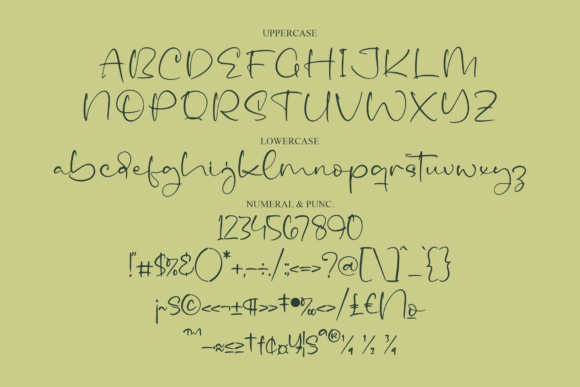 UPPERCASE
ABCDEFGHIJKLM
NOPQRSTUVWXYZ
LOWERCASE
abcdefghijklmnopqrstuvwxyz
NUMERAL & PUNC.
1234567890
!"#$%&()*+,-÷./:;<=>?@[\]^_`{}
¡~§©<<¬±¶>>‡•‰<>/£€№
™—≈≤≥†ƒ¢¤¥¦§ª®¼ ½ ¾